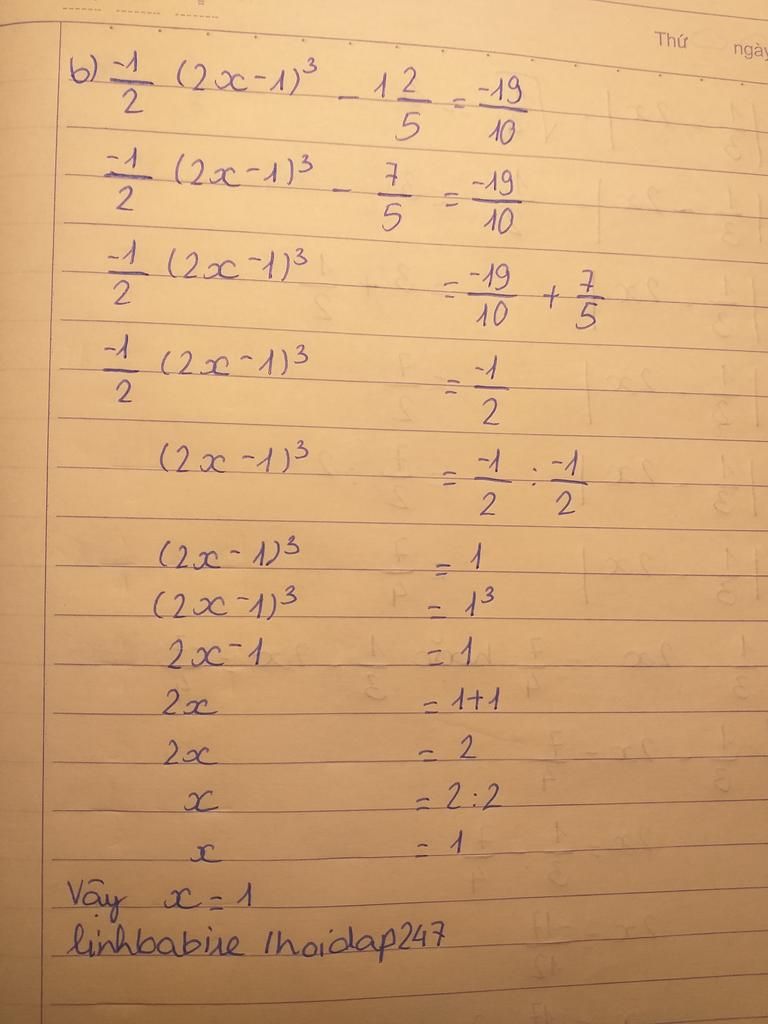 Thứ ngày
b) -1/2 (2x-1)³ - 1 2/5 = -19/10
-1/2 (2x-1)³ - 7/5 = -19/10
-1/2 (2x-1)³ = -19/10 + 7/5
-1/2 (2x-1)³ = -1/2
(2x-1)³ = -1/2 : -1/2
(2x-1)³ = 1
(2x-1)³ = 1³
2x-1 = 1
2x = 1+1
2x = 2
x = 2:2
x = 1
Vậy x = 1
linhbabire /hoidap247